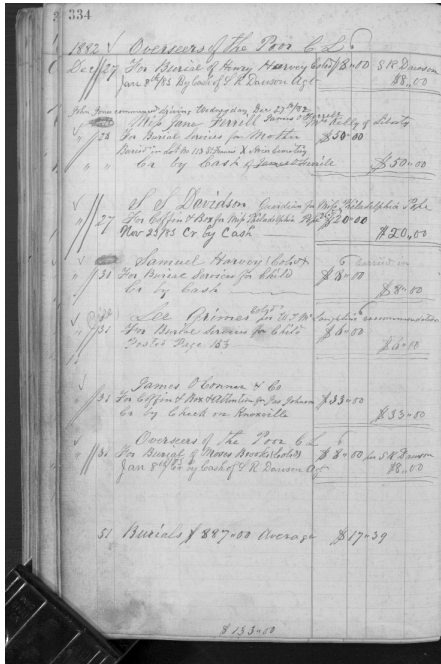 334
1882 Overseers of the Poor C L
Dec 27 For Burial of Henry Harvey Col'd $8-00 S R Dawson
Jan 8th/83 By Cash of S R Dawson Agt $8,00
commenced Wednesday, Dec 27th/82
Miss Jane Terrell
" 28 For Burial Services for Mother $50-00
Buried in Lot No
" " Cr by Cash of Terrell $50-00
S J Davidson Guardian for Miss Philadelphia Pope
" 27 For Coffin & Box for Miss Philadelphia Pope $20-00
Nov 23/83 Cr by Cash $20,00
Samuel Harvey (Colord)
" 31 For Burial Services for Child $8-00
Cr by Cash $8-00
Lee Grimes Col'd recommendation
" 31 For Burial Services for Child $6-00
Posted Page 153 $6-00
James O'Conner & Co
" 31 For Coffin & Box & Attention for Jas Johnson $33-00
Cr by Check on Knoxville $33-00
Overseers of the Poor C L
" 31 For Burial of Moses Brooks (Cold) $8-00 for S R Dawson
Jan 8th/83 Cr by Cash of S R Dawson Agt $8,00
51 Burials $887-00 Average $17-39
$133-00